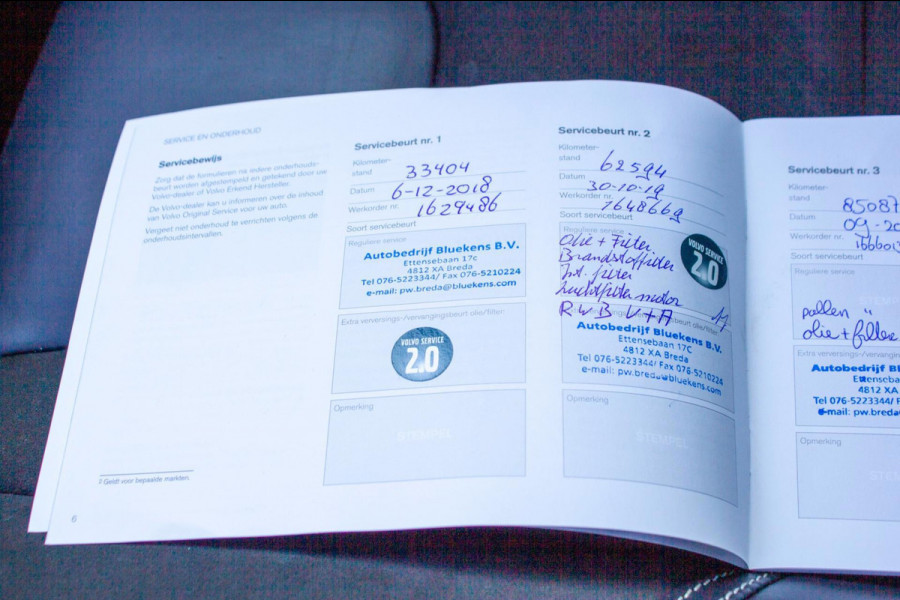 SERVICE EN ONDERHOUD
Servicebewijs
Zorg dat de formulieren na iedere onderhouds-
beurt worden afgestempeld en getekend door uw
Volvo-dealer of Volvo Erkend Hersteller.
De Volvo-dealer kan u informeren over de inhoud
van Volvo Original Service voor uw auto.
Vergeet niet onderhoud te verrichten volgens de
onderhoudsintervallen.
1 Geldt voor bepaalde markten.
6
Servicebeurt nr. 1
Kilometer-
stand 33404
Datum 6-12-2018
Werkorder nr. 1629486
Soort servicebeurt
Reguliere service
Autobedrijf Bluekens B.V.
Ettensebaan 17c
4812 XA Breda
Tel 076-5223344/ Fax 076-5210224
e-mail: pw.breda@bluekens.com
Extra verversings-/vervangingsbeurt olie/filter
VOLVO SERVICE
2.0
Opmerking
STEMPEL
Servicebeurt nr. 2
Kilometer-
stand 62594
Datum 30-10-19
Werkorder nr.
Soort servicebeurt
Reguliere service
Olie + Filter
Brandstoffilter
Int. filter
Luchtfilter motor
RWB V+A
VOLVO SERVICE
2.0
beurt olie/filter
Autobedrijf Bluekens B.V.
Ettensebaan 17c
4812 XA Breda
Tel 076-5223344/ Fax 076-5210224
e-mail: pw.breda@bluekens.com
Opmerking
STEMPEL
Servicebeurt nr. 3
Kilometer-
stand 85087
Datum 09-20
Werkorder nr.
Soort servicebeurt
Reguliere service
STEM
pollen "
olie + filter
Extra verversings-/vervanging
Autobedrijf Bl
Ettenseba
4812 XA
Tel 076-5223344/ F
e-mail: pw.breda
Opmerking
STEM